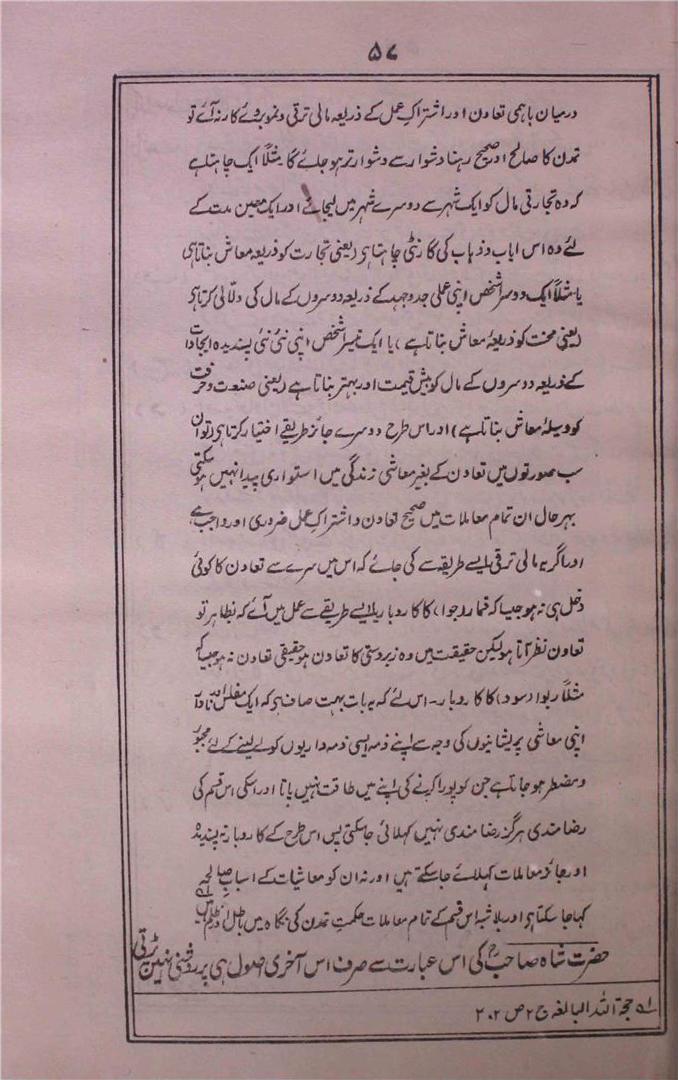 ۵۷
درمیان باہمی تعاون اور اشتراکِ عمل کے ذریعہ مالی ترقی و نمو بروئے کار نہ آئے تو
تمدن کا صالح اور صحیح رہنا دشوار سے دشوار تر ہو جائے گا مثلاً ایک چاہتا ہے
کہ وہ تجارتی مال کو ایک شہر سے دوسرے شہر میں لیجائے اور ایک معین مدت کے
لئے وہ اس ایاب و ذہاب کی گارنٹی چاہتا ہی (یعنی تجارت کو ذریعہ معاش بناتا ہی
یا مثلاً ایک دوسرا شخص اپنی عملی جد و جہد کے ذریعہ دوسروں کے مال کی دلّالی کرتا ہی
(یعنی محنت کو ذریعۂ معاش بناتا ہے) یا ایک تیسرا شخص اپنی نئی نئی پسندیدہ ایجادات
کے ذریعہ دوسروں کے مال کو بیش قیمت اور بہتر بناتا ہے (یعنی صنعت و حرفت
کو وسیلۂ معاش بناتا ہے) اور اس طرح دوسرے جائز طریقے اختیار کرتا ہی (تو ان
سب صورتوں میں تعاون کے بغیر معاشی زندگی میں استواری پیدا نہیں ہو سکتی
بہرحال ان تمام معاملات میں صحیح تعاون و اشتراکِ عمل ضروری اور واجب ہے،
اور اگر یہ مالی ترقی ایسے طریقہ سے کی جائے کہ اس میں سرے سے تعاون کا کوئی
دخل ہی نہ ہو جیسا کہ قمار (جوا) کا کاروبار یا ایسے طریقے سے عمل میں آئے کہ بظاہر تو
تعاون نظر آتا ہو لیکن حقیقت میں وہ زبردستی کا تعاون ہو حقیقی تعاون نہ ہو جیسا کہ
مثلاً ربوا (سود) کا کاروبار۔ اس لئے کہ یہ بات بہت صاف ہی کہ ایک مفلس اور نادار
اپنی معاشی پریشانیوں کی وجہ سے اپنے ذمہ ایسی ذمہ داریوں کو لے لینے کے لئے مجبور
و مضطر ہو جاتا ہے جن کو پورا کرنے کی اپنے میں طاقت نہیں پاتا اور اسکی اس قسم کی
رضامندی ہرگز رضامندی نہیں کہلائی جا سکتی پس اس طرح کے کاروبار نہ پسندیدہ
اور جائز معاملات کہلائے جا سکتے ہیں اور نہ ان کو معاشیات کے اسبابِ صالحہ
کہا جا سکتا ہی اور بلا شبہ اس قسم کے تمام معاملات حکمتِ تمدن کی نگاہ میں باطل اور ظلم ہیں لہ
حضرت شاہ صاحبؒ کی اس عبارت سے صرف اس آخری اصول ہی پر روشنی نہیں پڑتی
لہ حجۃ اللہ البالغہ ج ۲ ص ۲۰۲